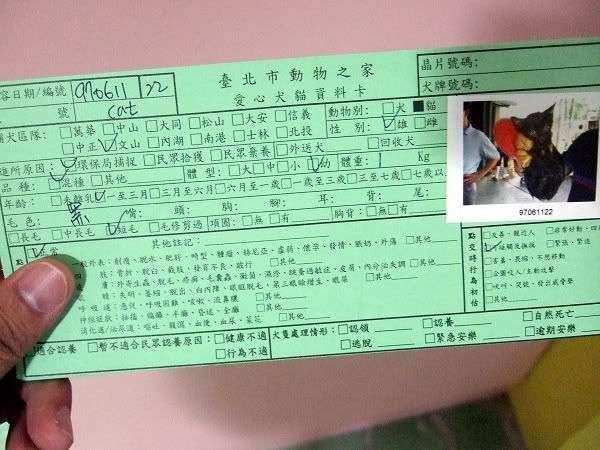 容日期/編號 970611 22 臺北市動物之家 晶片號碼:
號 cat 愛心犬貓資料卡 犬牌號碼:
捕犬區隊: □萬華 □中山 □大同 □松山 □大安 □信義 動物別: □犬 ■貓
□中正 □文山 □內湖 □南港 □士林 □北投 性別: □雄 □雌
進所原因: □環保局捕捉 □民眾拾獲 □民眾棄養 □外送犬 □回收犬
品種: □混種 □其他 體型: □大 □中 □小 □幼 體重: Kg
年齡: □未離乳 □一至三月 □三月至六月 □六月至一歲 □一歲至三歲 □三歲至七歲 □七歲以
毛色: 黑 嘴: 頭: 胸: 腳: 耳: 背: 尾:
□長毛 □中長毛 □短毛 □毛修剪過 項圈: □無 □有 胸背: □無 □有
97061122
其他註記:
□正常
外表: 削瘦、脫水、肥胖、畸型、腫瘤、赫尼亞、虛弱、懷孕、發情、脹奶、外傷 □其他
四肢: 骨折、脫臼、截肢、發育不良、跛行 □其他
皮膚: 外寄生蟲、脫毛、疥癬、毛囊蟲、黴菌、濕疹、跳蚤過敏症、皮屑、內分泌失調 □其他
眼睛: 失明、萎縮、脫出、白內障、眼瞼脫毛、第三眼瞼增生、眼屎 □其他
呼吸道: 急促、呼吸困難、咳嗽、流鼻膿 □其他
神經症狀: 抽搐、偏癱、半癱、昏迷、全癱 □其他
消化道/泌尿道: 嘔吐、腹瀉、血便、血尿、菜花 □其他
點交時行為初估
□友善、親近人 □非常好動、四
□碰觸反應 □緊張、緊迫
□害羞、長縮、不想移動
□企圖咬人/主動攻擊
□吠叫、哭號、發出威脅聲
□其他
□適合認養 □暫不適合民眾認養原因: □健康不適 犬隻處理情形: □認領 □認養 □自然死亡
□行為不適 □逃脫 □緊急安樂 □逾期安樂